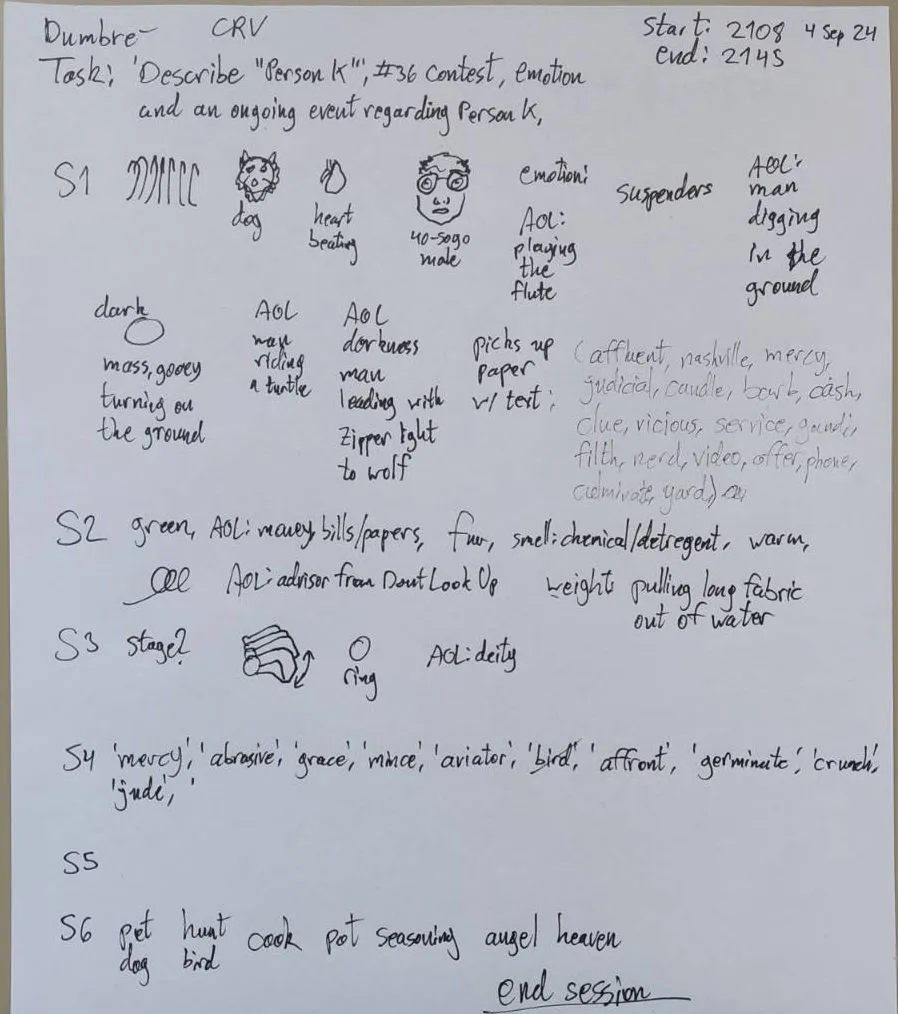 Dumbre- CRV Start: 2108 4 Sep 24
end: 2145
Task; 'Describe "Person K"', #36 contest, emotion
and an ongoing event regarding Person K,
S1
dog
heart
beating
40-50yo
male
emotion:
AOL:
playing
the
flute
suspenders
AOL:
man
digging
in the
ground
dark
mass, gooey
turning on
the ground
AOL
man
riding
a turtle
AOL
darkness
man
leading with
zipper light
to wolf
picks up
paper
w/ text;
(affluent, nashville, mercy,
judicial, candle, bomb, cash,
clue, vicious, service,
filth, nerd, video, offer, phone,
culminate, yard)
S2 green, AOL: money, bills/papers, fur, smell: chemical/detregent, warm,
AOL: advisor from Dont Look Up weights pulling long fabric
out of water
S3 stage?
ring
AOL: deity
S4 'mercy', 'abrasive', 'grace', 'mince', 'aviator', 'bird', 'affront', 'germinate', 'crunch',
'jude', '
S5
S6 pet hunt cook pot seasoning angel heaven
dog bird
end session